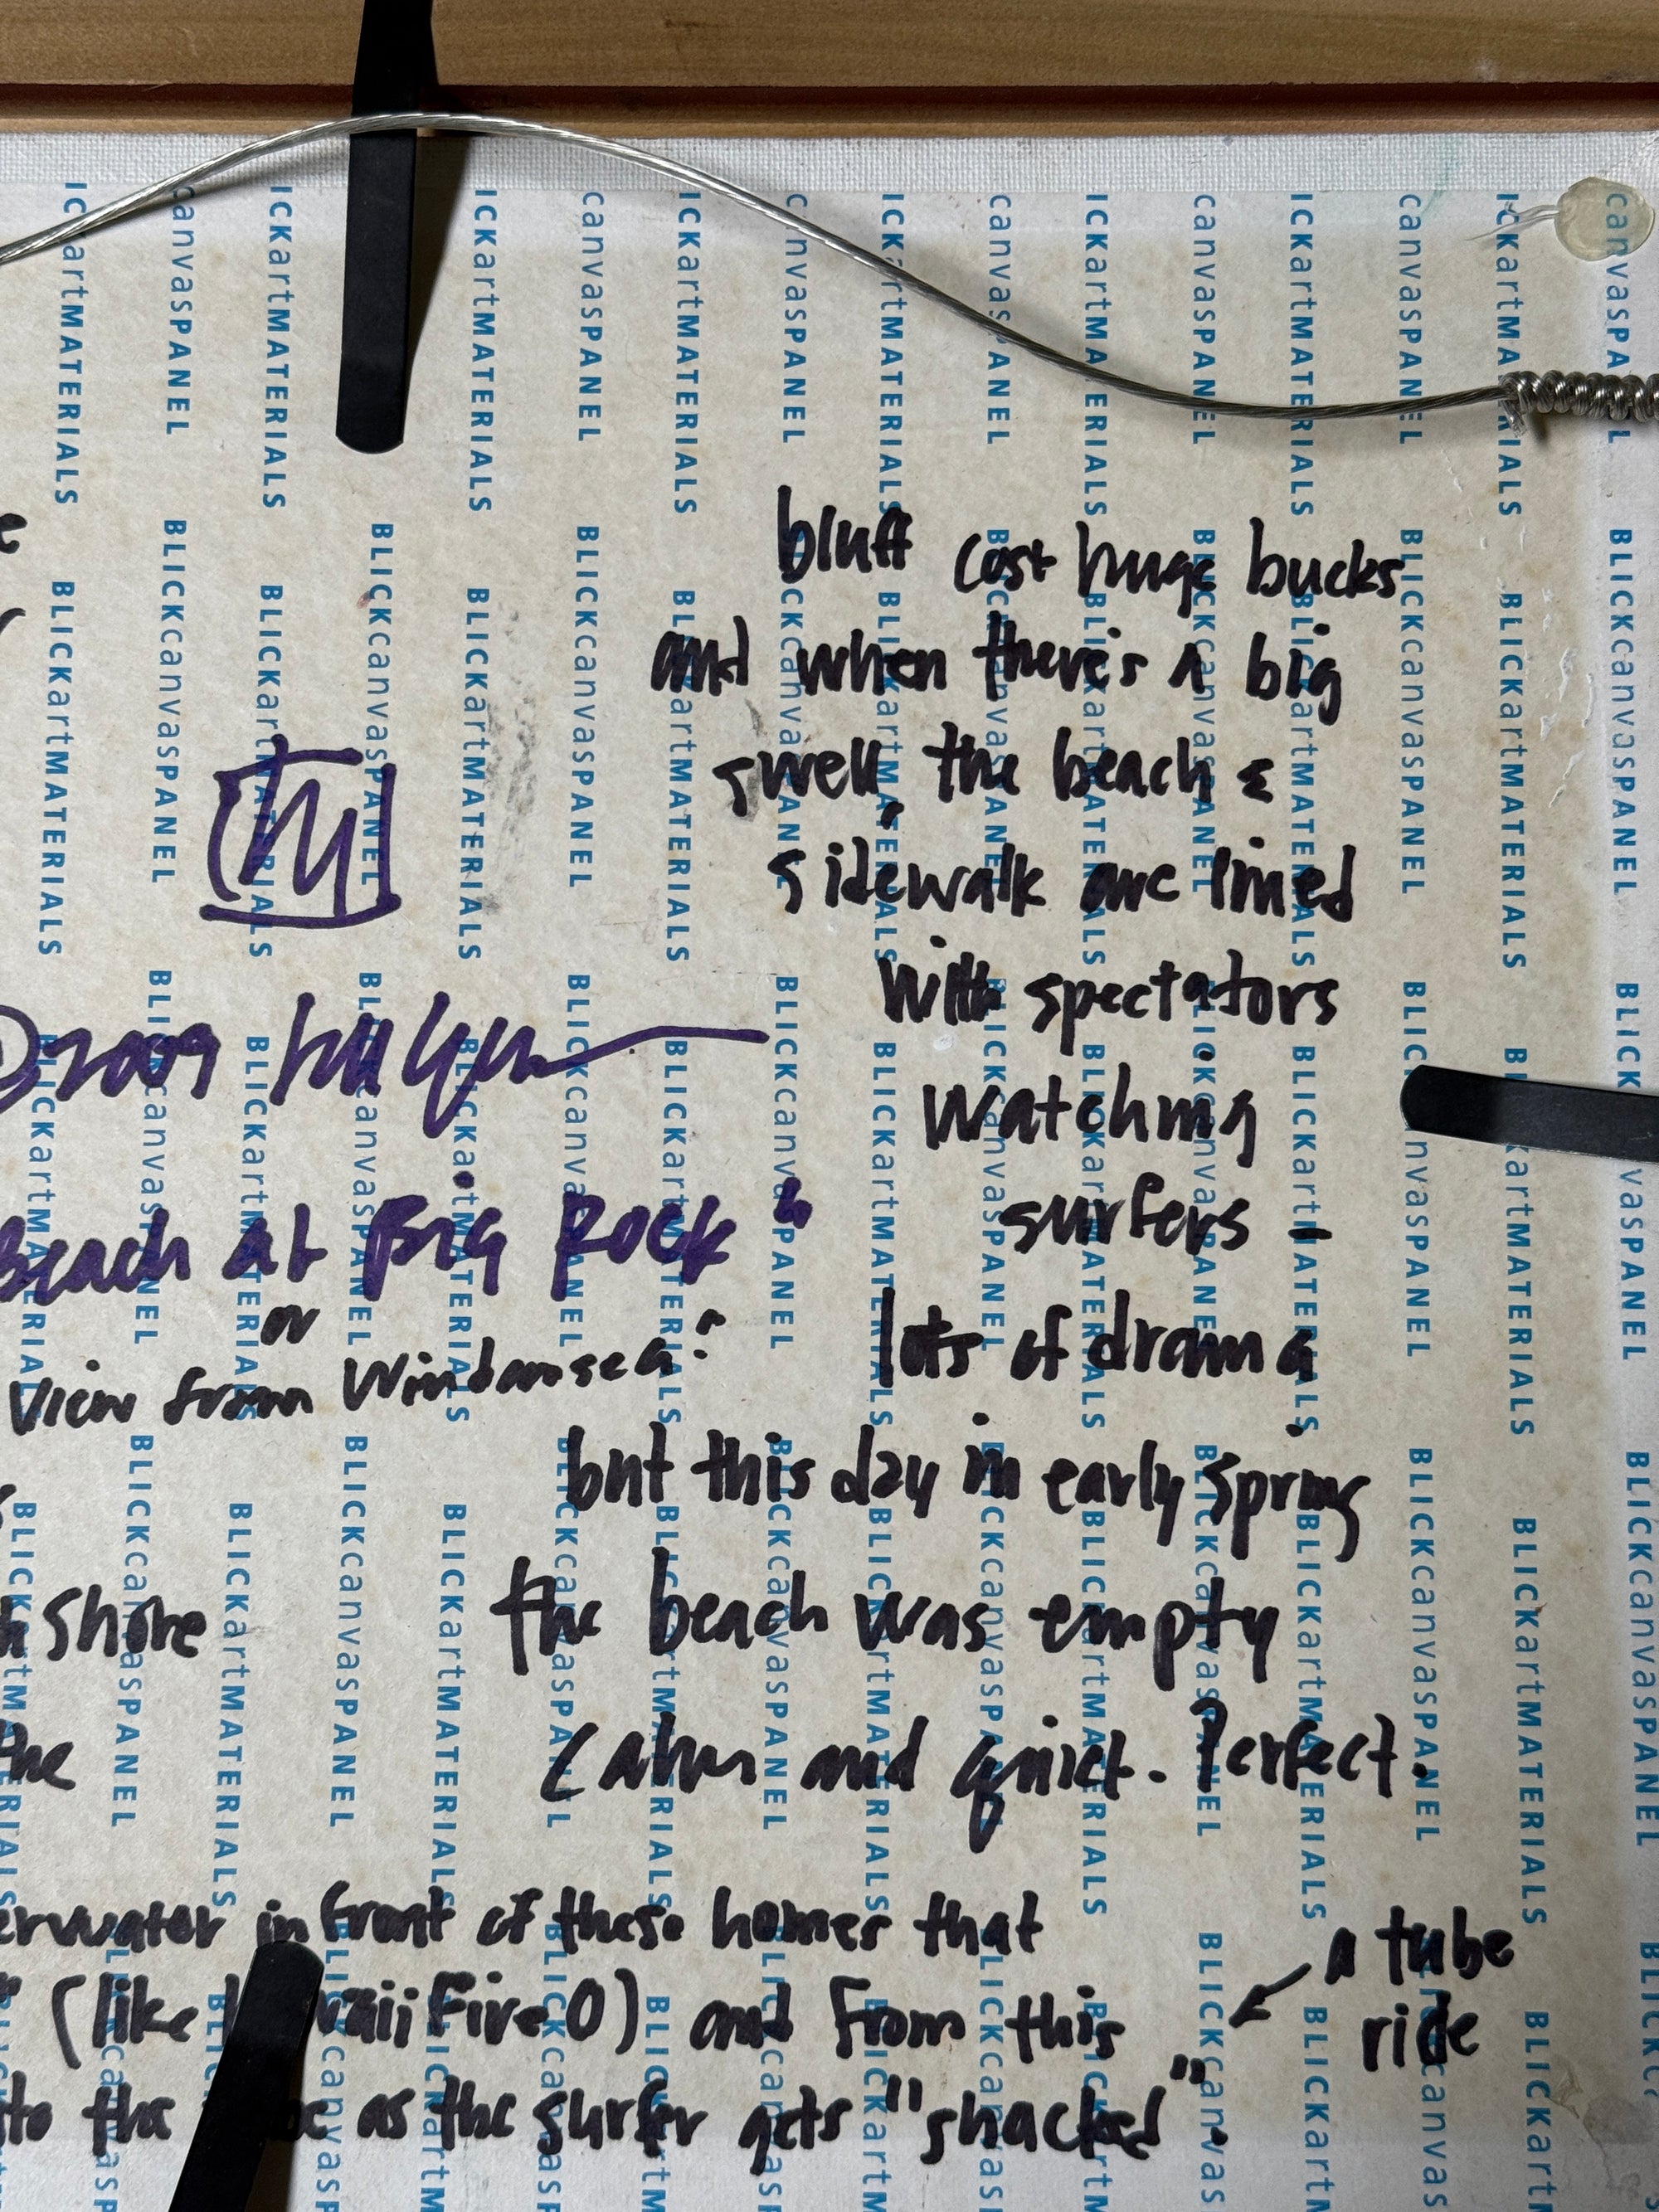 bluff cost huge bucks
and when there's a big
swell, the beach &
sidewalk are lined
with spectators
watching
surfers -
lots of drama
but this day in early spring
the beach was empty
Calm and quiet. Perfect.
©2009
Beach at Big Rock"
or
View from Windansea"
shore
the
in front of these homes that
(like Hawaii Five O) and from this
to the as the surfer gets "shacked".
a tube
ride
BLICKartMATERIALS
BLICKcanvasPANEL